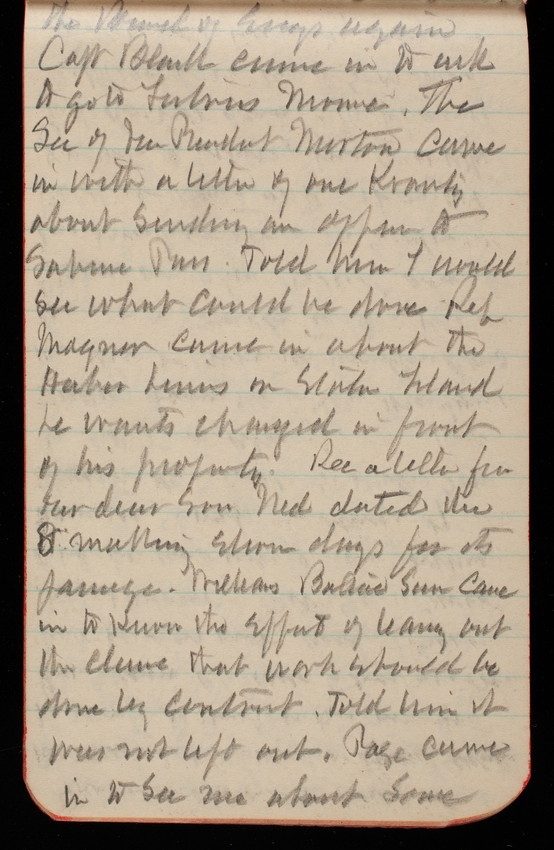 the Board of Engs again
Capt Black came in to ask
to go to Fortress Monroe. The
Sec of Vice President Morton came
in with a letter of one Krantz
about sending an officer to
Sabine Pass. Told him I would
see what could be done Rep
Magner came in about the
Harbor Lines on Staten Island
he wants changed in front
of his property. Rec a letter from
our dear son Ned dated the
8" making eleven days for its
passage. Williams Sun came
in to know the effect of leaving out
the clause that work should be
done by contract. Told him it
was not left out. Page came
in to see me about some